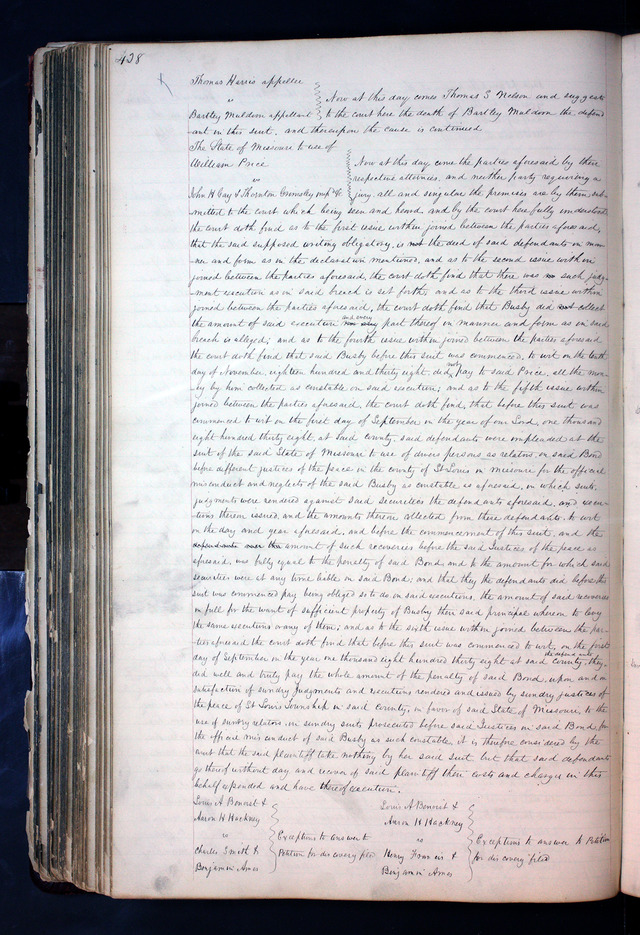 438
Thomas Harris appellee
"
Bartley Muldoon appellant
Now at this day comes Thomas S Nelson and suggests
to the court here the death of Bartley Muldoon the defend
ant in this suit, and thereupon the cause is continued
The State of Missouri to use of
William Price
vs
John H Gay & Thornton Grimsley imp &c
Now at this day come the parties aforesaid by their
respective attornies, and neither party requiring a
jury, all and singular the premises are by them sub-
mitted to the court which being seen and heard, and by the court here fully understood
the court doth find as to the first issue within joined between the parties aforesaid,
that the said supposed writing obligatory, is not the deed of said defendants in man-
ner and form as in the declaration mentioned, and as to the second issue within
joined between the parties aforesaid, the court doth find that there was no such judg-
ment execution as in said breach is set forth, and as to the third issue within
joined between the parties aforesaid, the court doth find that Busby did not collect
the amount of said execution and every part thereof in manner and form as in said
breach is alleged; and as to the fourth issue within joined between the parties aforesaid
the court doth find that said Busby before this suit was commenced, to wit on the tenth
day of November, eighteen hundred and thirty eight did not pay to said Price, all the mon-
ey by him collected as constable on said execution; and as to the fifth issue within
joined between the parties aforesaid, the court doth find, that before this suit was
commenced to wit on the first day of September in the year of our Lord, one thousand
eight hundred thirty eight, at said county, said defendants were impleaded at the
suit of the said State of Missouri to use of divers persons as relators, on said Bond
before different justices of the peace in the county of St Louis in Missouri for the official
misconduct and neglects of the said Busby as constable as aforesaid, in which suits
judgments were rendered against said securities the defendants aforesaid, and execu-
tions thereon issued, and the amounts thereon collected from these defendants, to wit
on the day and year aforesaid, and before the commencement of this suit, and the
defendants aver the amount of such recoveries before the said Justices of the peace as
aforesaid, was fully equal to the penalty of said Bond, and to the amount for which said
securities were at any time liable on said Bond, and that they the defendants did before this
suit was commenced pay, being obliged so to do on said executions, the amount of said recoveries
in full for the want of sufficient property of Busby their said principal whereon to levy
the same executions or any of them; and as to the sixth issue within joined between the par-
ties aforesaid the court doth find that before this suit was commenced to wit, on the first
day of September in the year one thousand eight hundred thirty eight at said county, they defendants
did well and truly pay the whole amount of the penalty of said Bond, upon and in
satisfaction of sundry Judgments and executions rendered and issued by sundry justices of
the peace of St Louis Township in said county, in favor of said State of Missouri, to the
use of sundry relators, in sundry suits prosecuted before said Justices on said Bond, for
the official misconduct of said Busby as such constable, it is therefore considered by the
court that the said plaintiff take nothing by her said suit but that said defendants
go thereof without day, and recover of said plaintiff their costs and charges in this
behalf expended and have thereof execution.
Louis A Benoist &
Aaron H Hackney
vs
Charles Smith &
Benjamin Ames
Exceptions to answer to
Petition for discovery filed
Louis A Benoist &
Aaron H Hackney
vs
Benjamin Ames
Exceptions to answer to Petition
for discovery filed